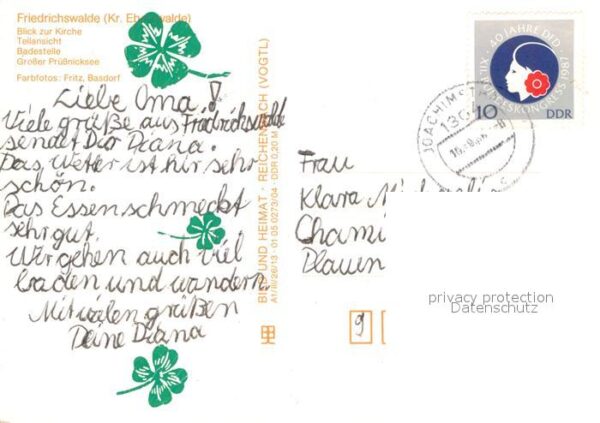 Friedrichswalde (Kr. Eberswalde)
Blick zur Kirche
Teilansicht
Badestelle
Großer Prüßnicksee
Farbfotos: Fritz, Basdorf
Liebe Oma!
Viele grüße aus Friedrichswalde
sendet Dir Diana.
Das Weter ist hir sehr
schön.
Das Essen schmeckt
sehr gut.
Wir gehen auch viel
baden und wandern.
Mit vielen grüßen
Deine Diana
BILD UND HEIMAT · REICHENBACH (VOGTL)
A1/III/26/13 · 01 05 0273/04 · DDR 0,20 M
40 JAHRE DFD
XII. BUNDESKONGRESS 1987
10 DDR
JOACHIMSTHAL
Frau
Klara
Plauen
privacy protection
Datenschutz
9